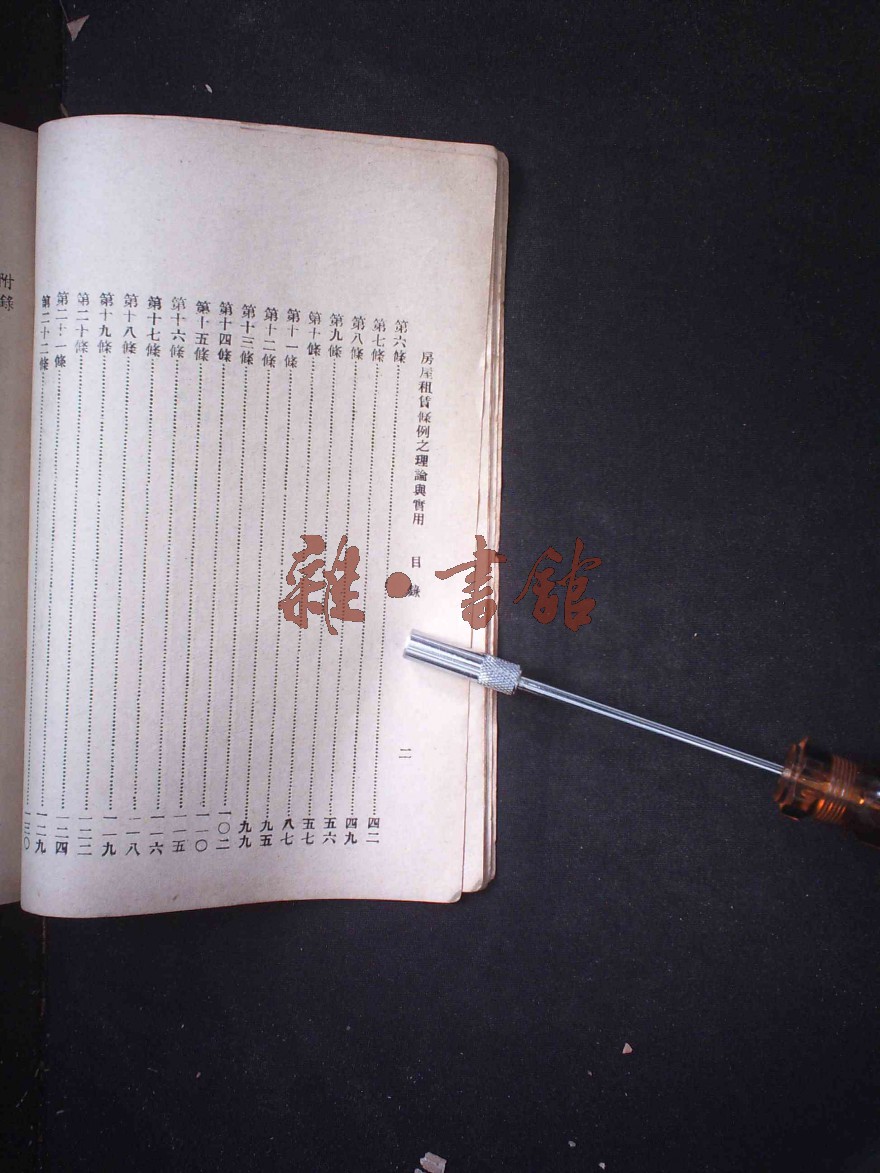 房屋租賃條例之理論與實用 目錄 二
第六條……四二
第七條……四九
第八條……五六
第九條……五七
第十條……八七
第十一條……九五
第十二條……九九
第十三條……一〇二
第十四條……一一〇
第十五條……一一五
第十六條……一一六
第十七條……一一八
第十八條……一一九
第十九條……一二二
第二十條……一二四
第二十一條……一二九
第二十二條……一三〇
附錄
雜·書館